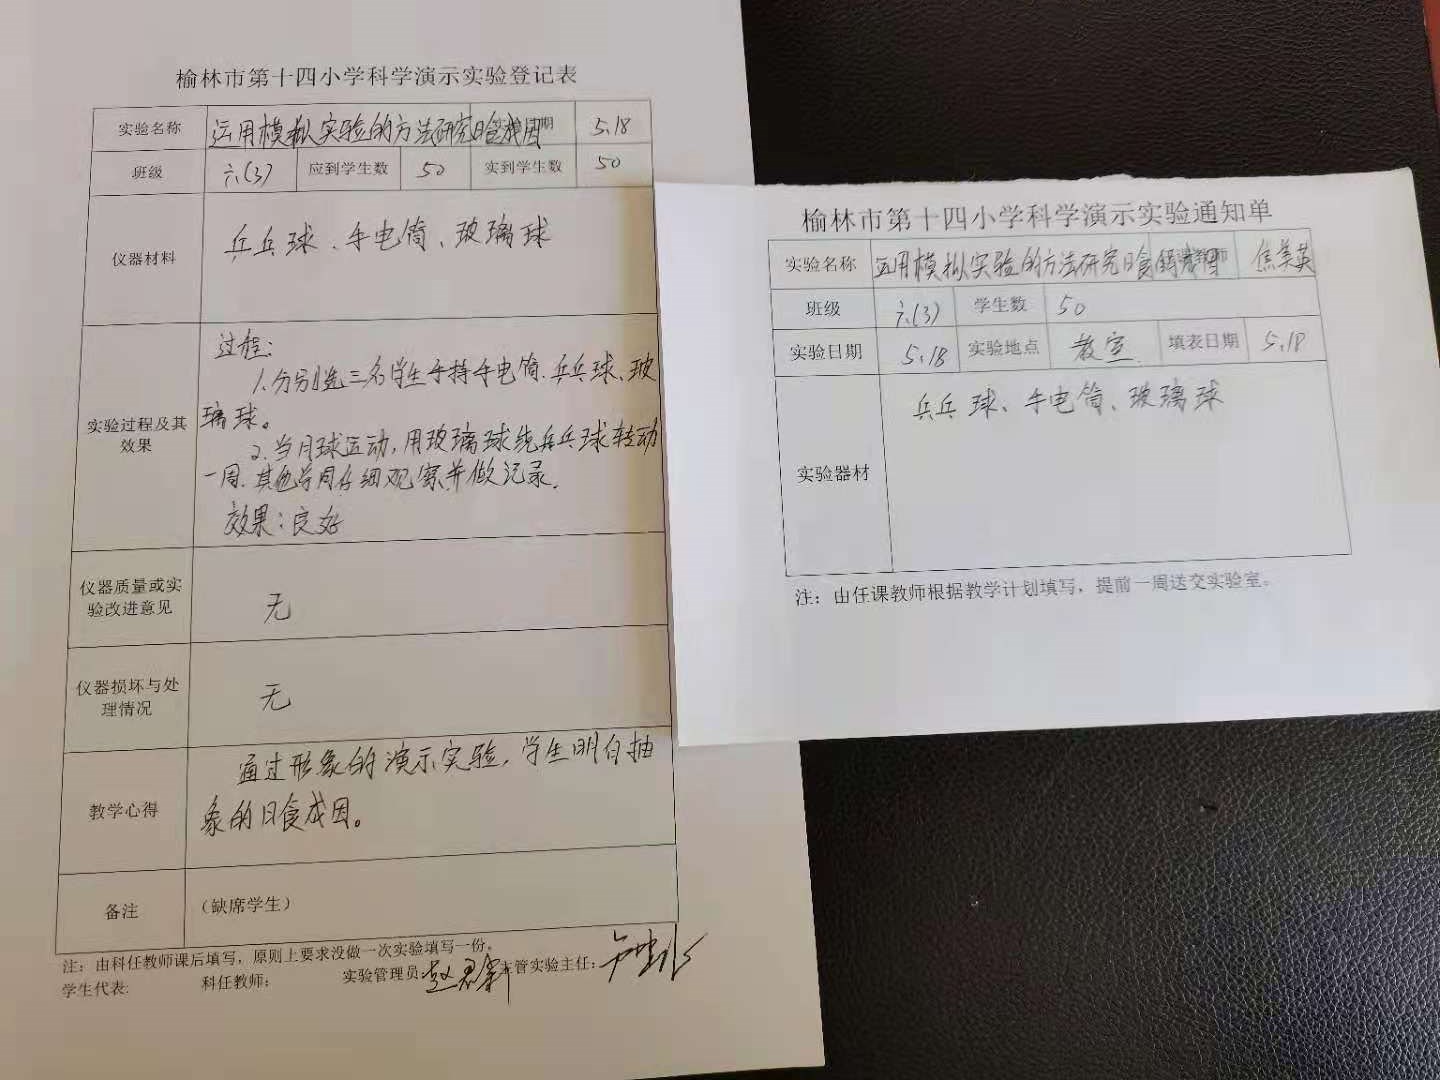 榆林市第十四小学科学演示实验登记表
实验名称 运用模拟实验的方法研究日食成因 期 5.18
班级 六(3) 应到学生数 50 实到学生数 50
仪器材料 乒乓球、手电筒、玻璃球
过程:
1.分别选三名学生手持手电筒、乒乓球、玻
璃球。
实验过程及其
效果
2.当月球运动,用玻璃球绕乒乓球转动
一周.其他学同仔细观察并做记录.
效果:良好
仪器质量或实
验改进意见
无
仪器损坏与处
理情况
无
教学心得
通过形象的演示实验,学生明白抽
象的日食成因。
备注 (缺席学生)
注:由科任教师课后填写,原则上要求没做一次实验填写一份。
学生代表: 科任教师: 实验管理员: 主管实验主任:
榆林市第十四小学科学演示实验通知单
实验名称 运用模拟实验的方法研究日食的成因 教师 焦美英
班级 六(3) 学生数 50
实验日期 5.18 实验地点 教室 填表日期 5.18
实验器材 乒乓球、手电筒、玻璃球
注:由任课教师根据教学计划填写,提前一周送交实验室。